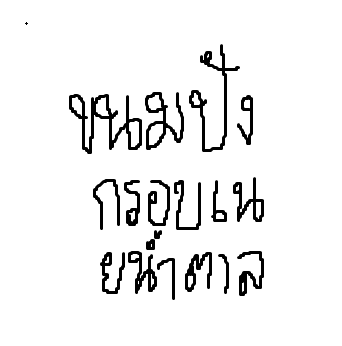 ขนมปัง
กรอบเน
ยน้ำตาล